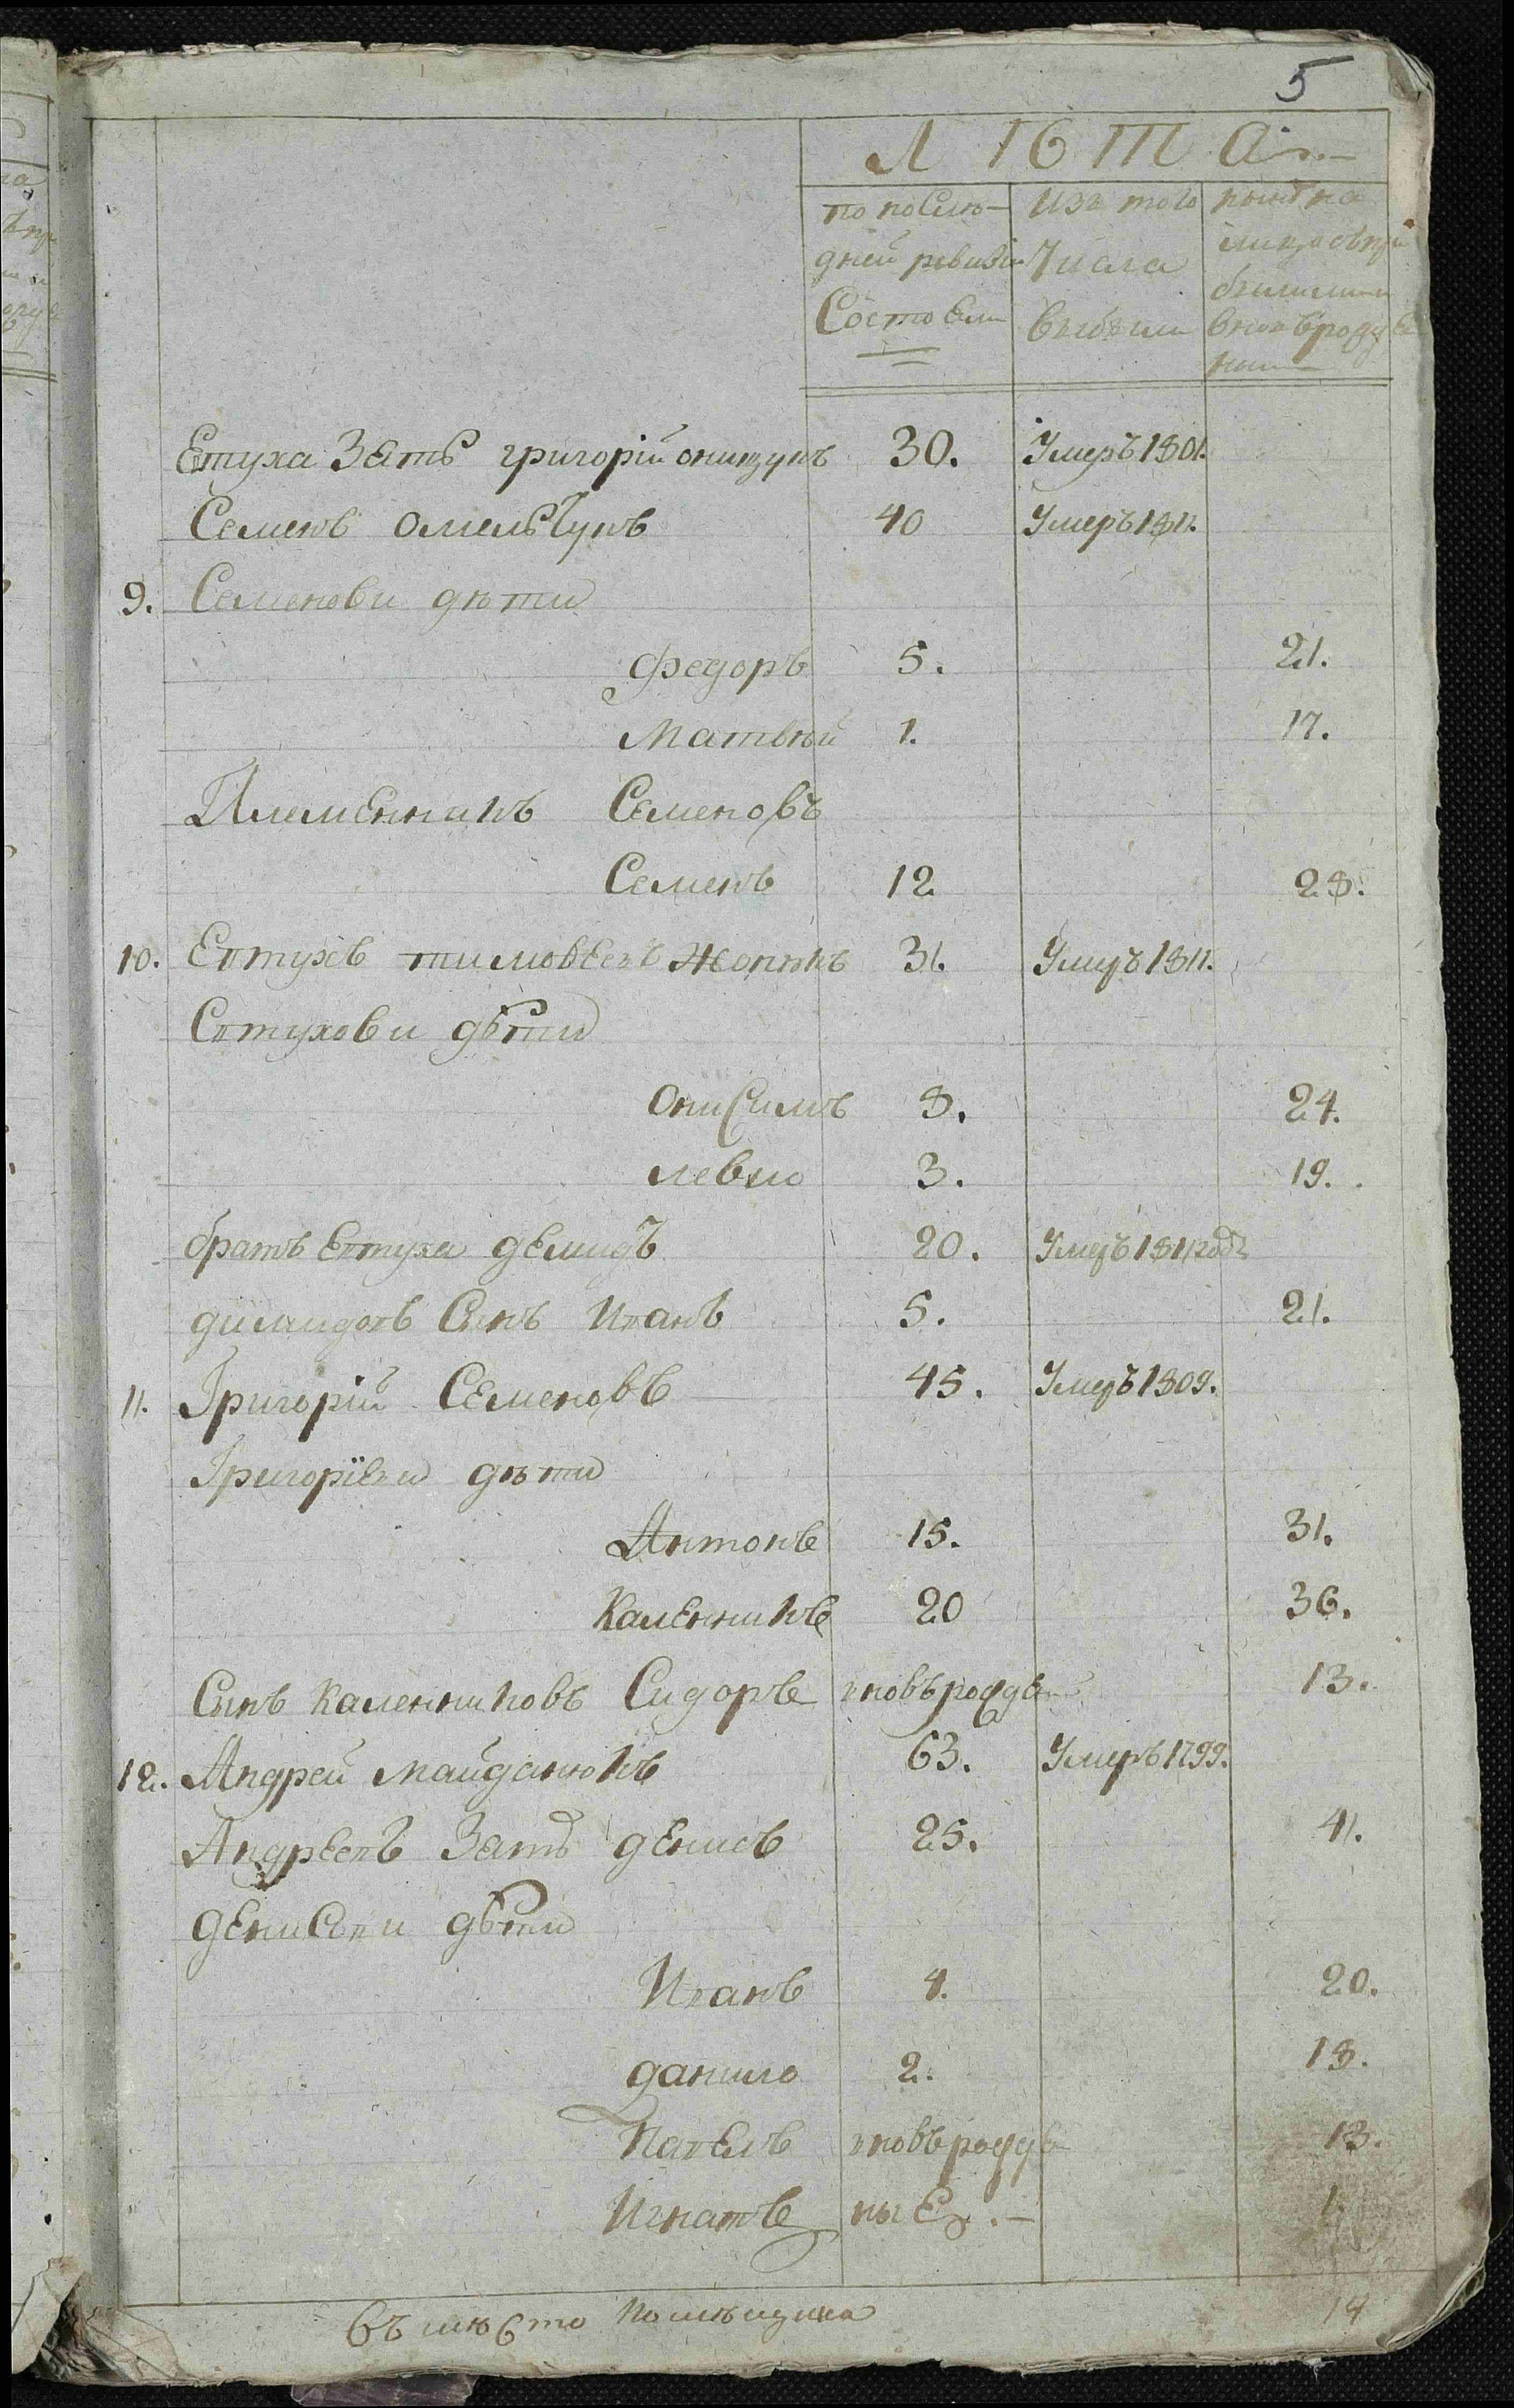 5
Лѣта
по послѣ- изъ того нынѣ на
дней ревизіи числа лицо съ при
Состоели выбыли былыми и
вновъ рожде
ными
Евтуха Зеть григорій онищукъ 30. Умеръ 1801.
Семенъ омельчукъ 40 Умеръ 1811.
9. Семенови дѣти
федоръ 5. 21.
Матвѣй 1. 17.
Племенникъ Семеновъ
Семенъ 12 28.
10. Евтухъ тимовеевъ 31. Умеръ 1811.
Евтухови дѣти
Онисимъ 8. 24.
левко 3. 19.
братъ Евтуха демидъ 20. Умеръ 1811 годъ
димидовъ Синъ Иванъ 5. 21.
11. Григорій Семеновъ 45. Умеръ 1809.
Григоріеви дѣти
Антонъ 15. 31.
Каленникъ 20 36.
Синъ каленниковъ Сидоръ вновъ рожде 13.
12. Андрей майданюкъ 63. Умеръ 1799.
Андреевъ Зеть денисъ 25. 41.
денисови дѣти
Иванъ 4. 20.
данило 2. 18.
Павелъ вновъ рожде 13.
Игнатъ ные. — 1.
въместо помѣщика 18